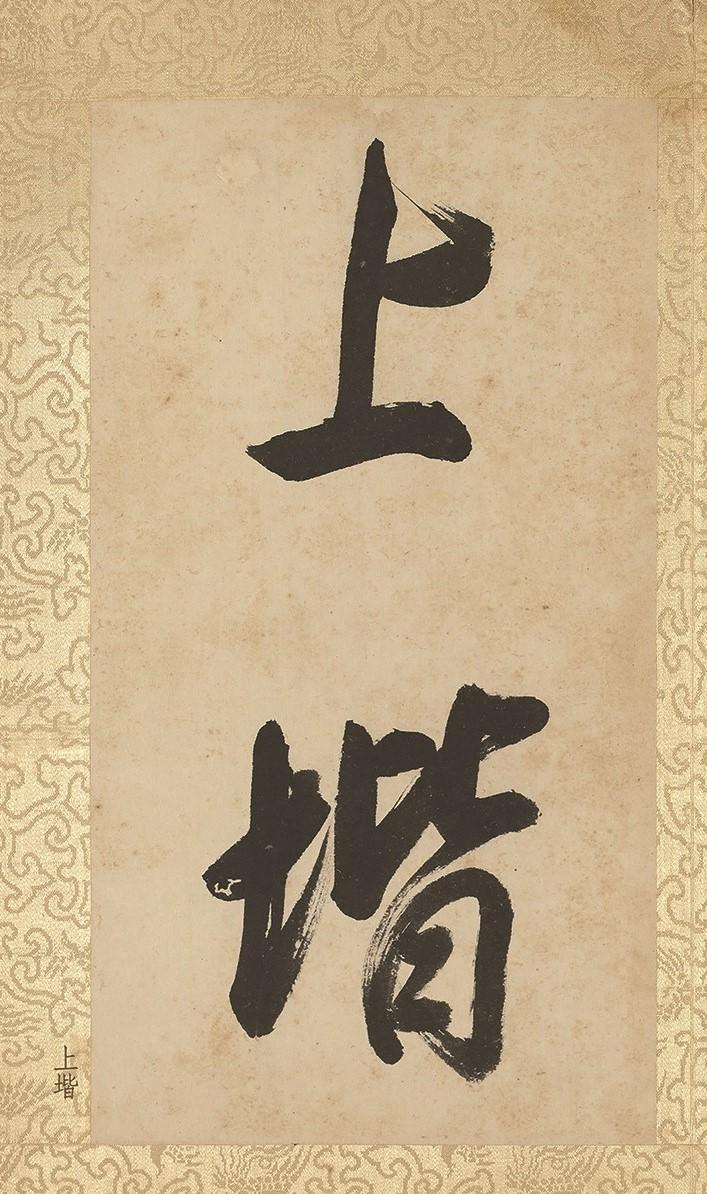 上
堦
上堦